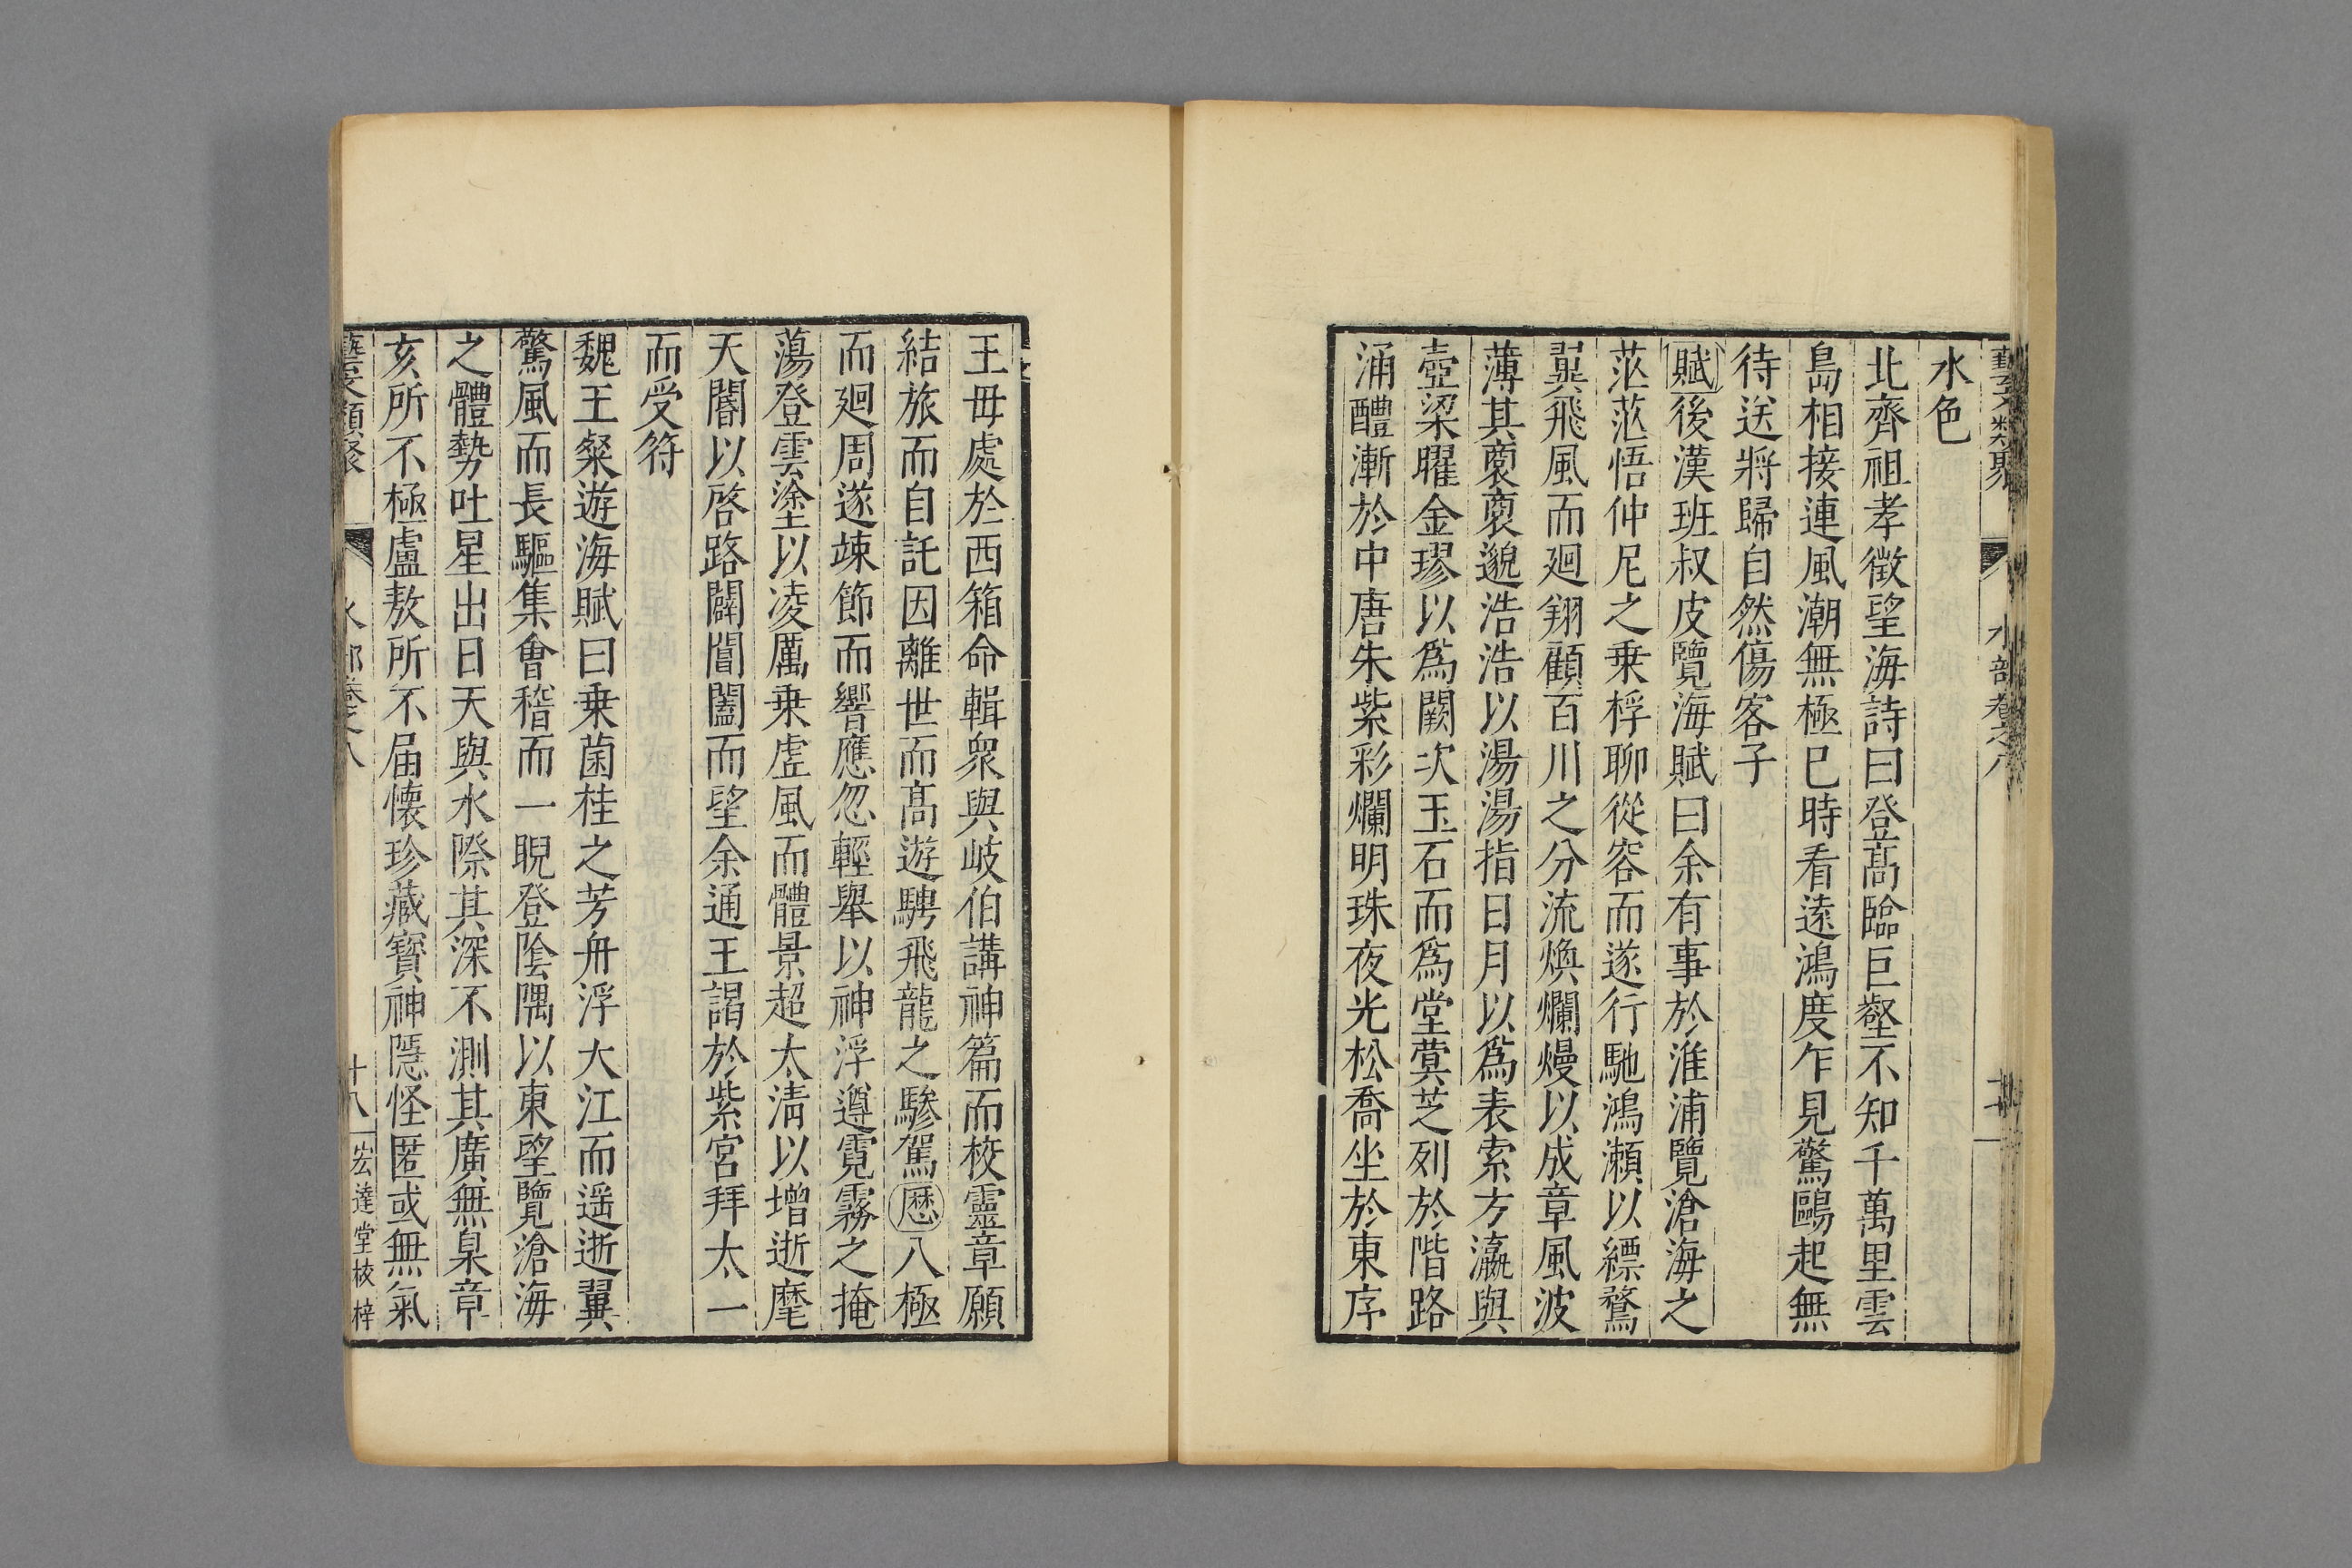 藝文類聚 水部卷之八
水色
北齊祖孝徵望海詩曰登高臨巨壑不知千萬里雲
島相接連風潮無極巳時看遠鴻度乍見驚鷗起無
待送將歸自然傷客子
賦後漢班叔皮覽海賦曰余有事於淮浦覽滄海之
茫茫悟仲尼之乗桴聊從容而遂行馳鴻瀨以縹鶩
翼飛風而廻翔顧百川之分流煥爛熳以成章風波
薄其裔裔邈浩浩以湯湯指日月以爲表索方瀛與
壺梁曜金璆以爲闕次玉石而爲堂蓂芝列於階路
涌醴漸於中唐朱紫彩爛明珠夜光松喬坐於東序
王毋處於西箱命輯衆與岐伯講神篇而校靈章願
結旅而自託因離世而高遊騁飛龍之驂駕歷八極
而廻周遂竦節而響應忽輕舉以神浮遵霓霧之掩
蕩登雲塗以凌厲乗虛風而體景超太清以增逝麾
天閽以啓路闢閶闔而望余通王謁於紫宮拜太一
而受符
魏王粲遊海賦曰乗菌桂之芳舟浮大江而遥逝翼
驚風而長驅集會稽而一睨登陰隅以東望覽滄海
之體勢吐星出日天與水際其深不測其廣無臬章
亥所不極盧敖所不届懐珍藏寳神隱怪匿或無氣
藝文類聚 水部卷之八 十八 宏達堂校梓